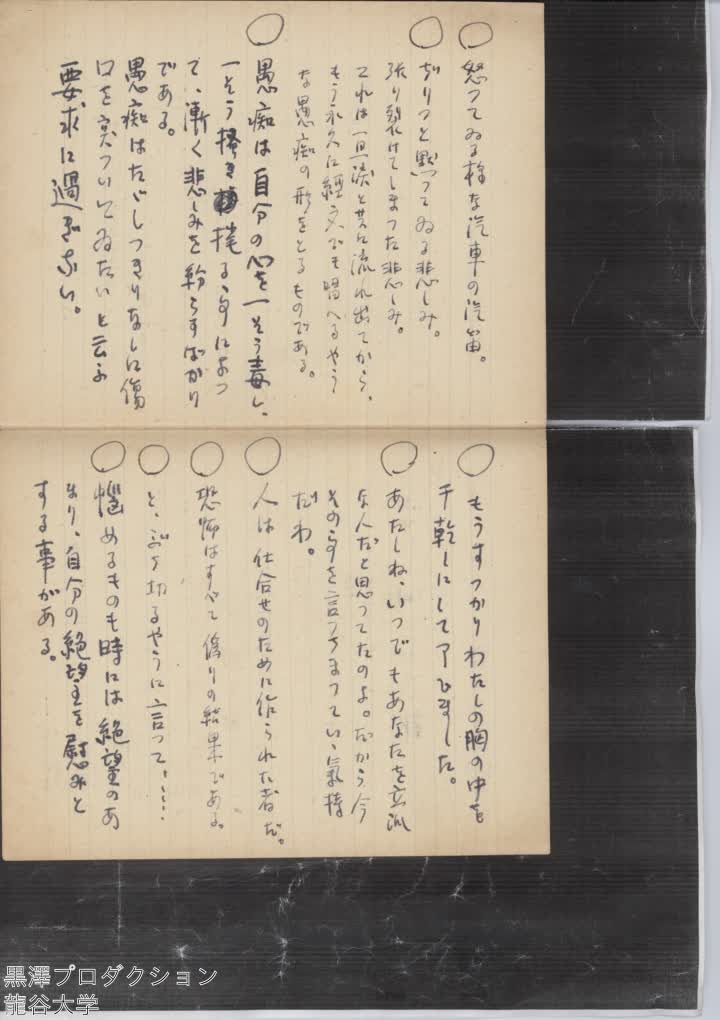 ○ 怒つてゐる様な汽車の汽笛。
○ ぢりつと黙つてゐる悲しみ。
張り裂けてしまつた悲しみ。
これは一旦涙と共に流れ出てから、
もう永久に経文でも唱へるやう
な愚痴の形をとるものである。
○ 愚痴は自分の心を一そう毒し、
一そう掻き挘る事によつ
て、漸く悲しみを紛らすばかり
である。
愚痴はたゞしつきりなしに傷
口を突ついてゐたいと云ふ
要求に過ぎない。
○ もうすつかりわたしの胸の中を
干乾しにして了ひました。
○ あたしね、いつでもあなたを立派
な人だと思つてたのよ。だから今
その事を言つちまつていゝ気持
だわ。
○ 人は仕合せのために作られた者だ。
○ 恐怖はすべて偽りの結果である。
○ と、ぶち切るやうに言つて、……
○ 悩めるものも時には絶望のあ
まり、自分の絶望を慰みと
する事がある。
黒澤プロダクション
龍谷大学